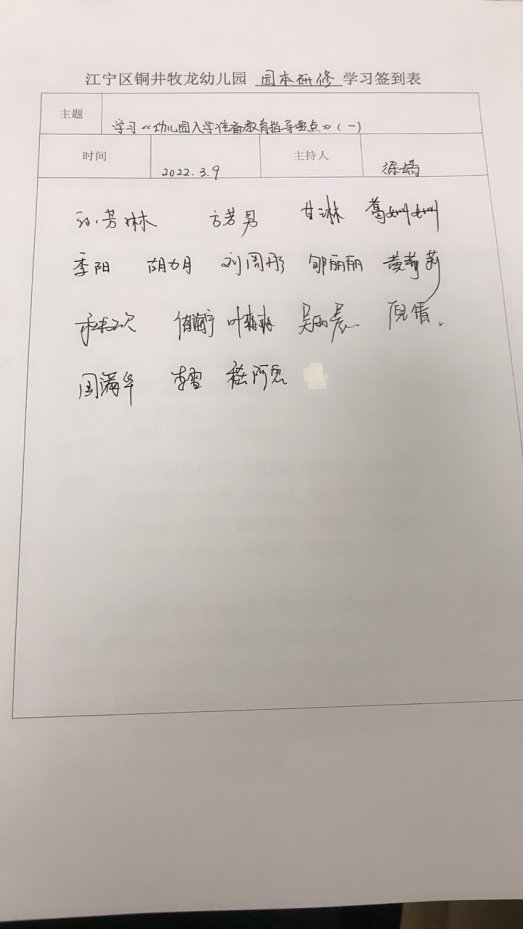 江宁区铜井牧龙幼儿园 园本研修 学习签到表
主题 学习《幼儿园入学准备教育指导要点》(一)
时间 2022.3.9 主持人
孙芳琳 方若男 甘琳 葛姗姗
季阳 胡力月 刘周彤 邹丽丽 黄莉莉
叶莉莉 吴雨晨 倪倩
周满华 李雪